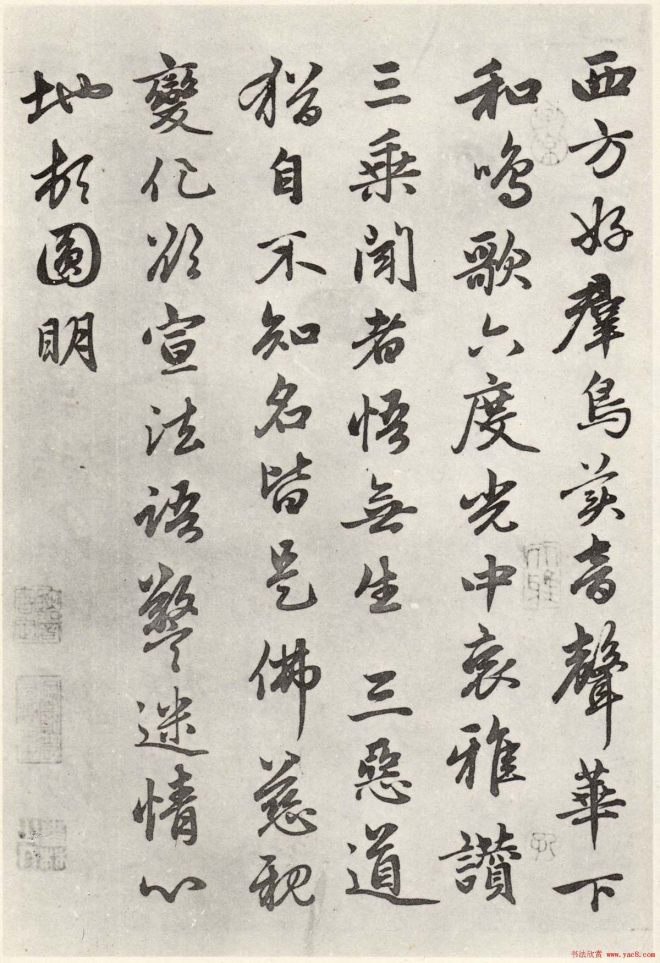 西方好羣鳥美音聲華下
和鳴歌六度光中哀雅讚
三乘聞者悟無生 三惡道
猶自不知名皆是佛慈親
變化欲宣法語警迷情心
地頓圓明
书法欣赏 www.yac8.com